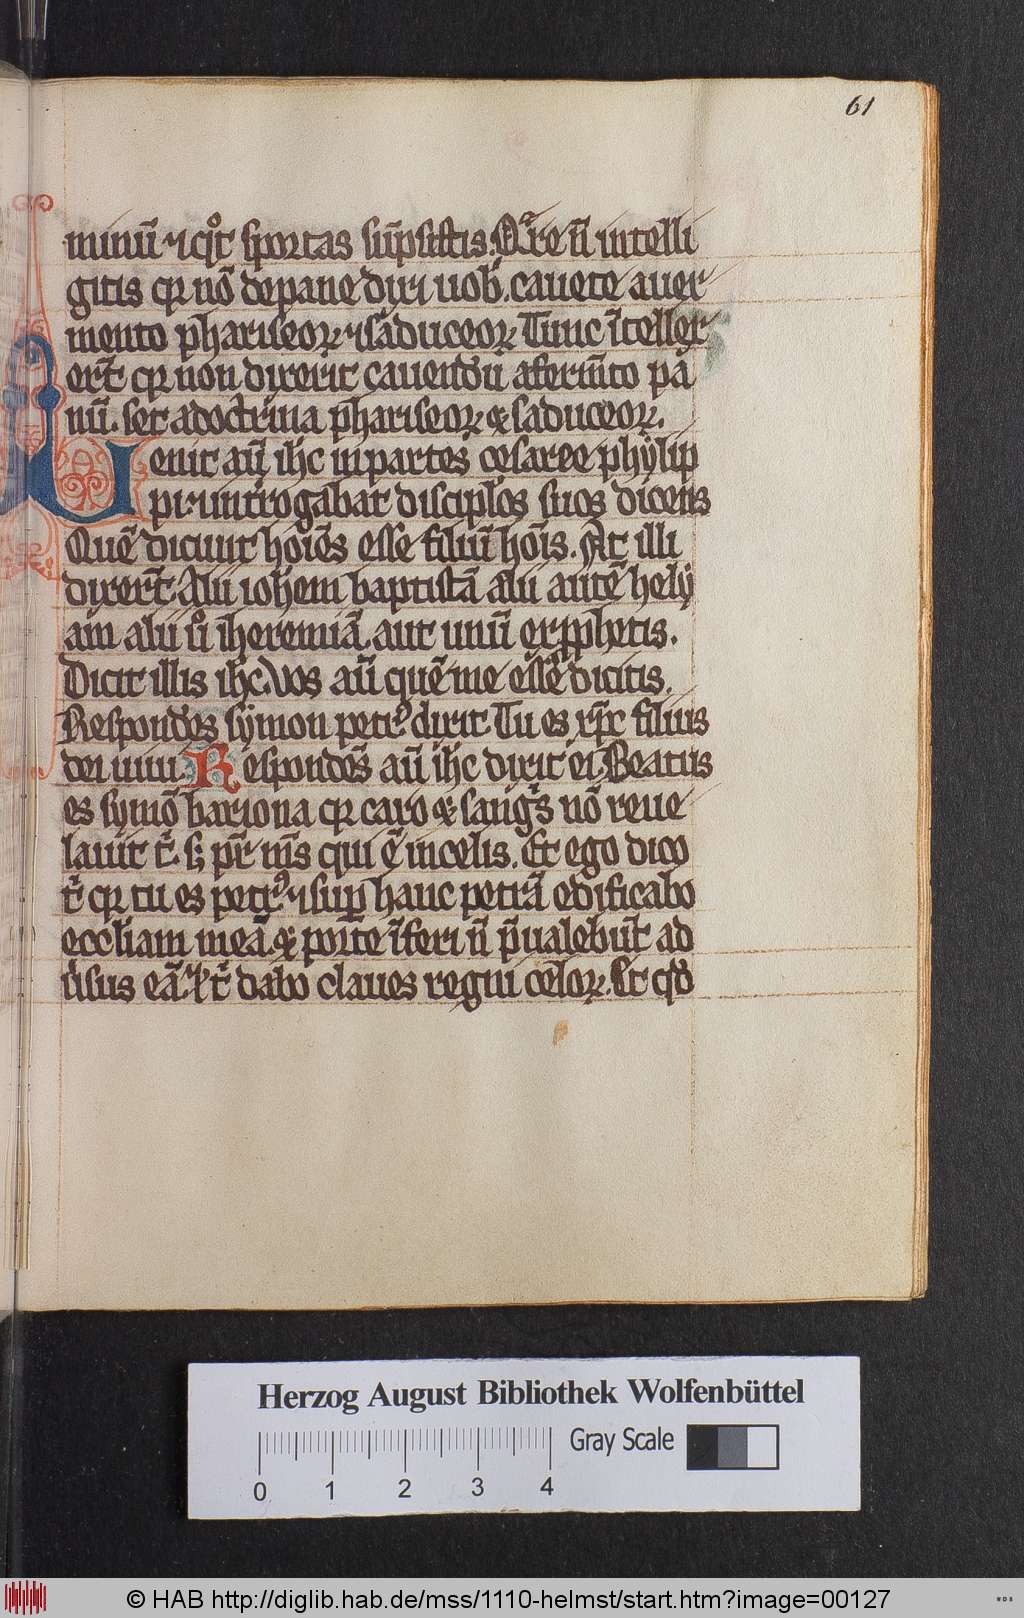 61
minū ⁊ cꝗͦt sportas sūpsistis. Qͣre n̄ intelli
gitis qꝛ nō de pane dixi uob̵. cauete a fer
mento phariseoꝝ ⁊ saduceoꝝ. Tunc ītellex
ert̄ qꝛ non dixerit cauendū a ferm̄to pa
nū. set a doctrina phariseoꝝ ⁊ saduceoꝝ.
Uenit aū ih̄c in partes cesaree phylip
pi. ⁊ int̄rogabat discipl̓os suos dicens
Quē dicunt hoīes esse filiū hoīs. At illi
dixert̄ Alii ioh̄em baptistā alii autē hely
am alii uͦ iheremiā. aut unū ex ꝓphetis.
Dicit illis ih̄c. Vos aū quē me esse dicitis.
Respondēs symon petrꝰ dixit. Tu es xp̄c filius
dei uiui. Respondēs aū ih̄c dixit ei. Beatus
es symō bariona qꝛ caro ⁊ sangͥs nō reue
lauit t͛. s; pr̄ ms̄ qui ē in celis. Et ego dico
t͛ qꝛ tu es petrꝰ. ⁊ suꝑ hanc petrā edificabo
eccl̄iam meā. ⁊ porte īferi n̄ p̄ualebūt ad
ũsus eā. ⁊ t͛ dabo claues regni celoꝝ. Et qd̓
Herzog August Bibliothek Wolfenbüttel
Gray Scale
0 1 2 3 4
© HAB http://diglib.hab.de/mss/1110-helmst/start.htm?image=00127